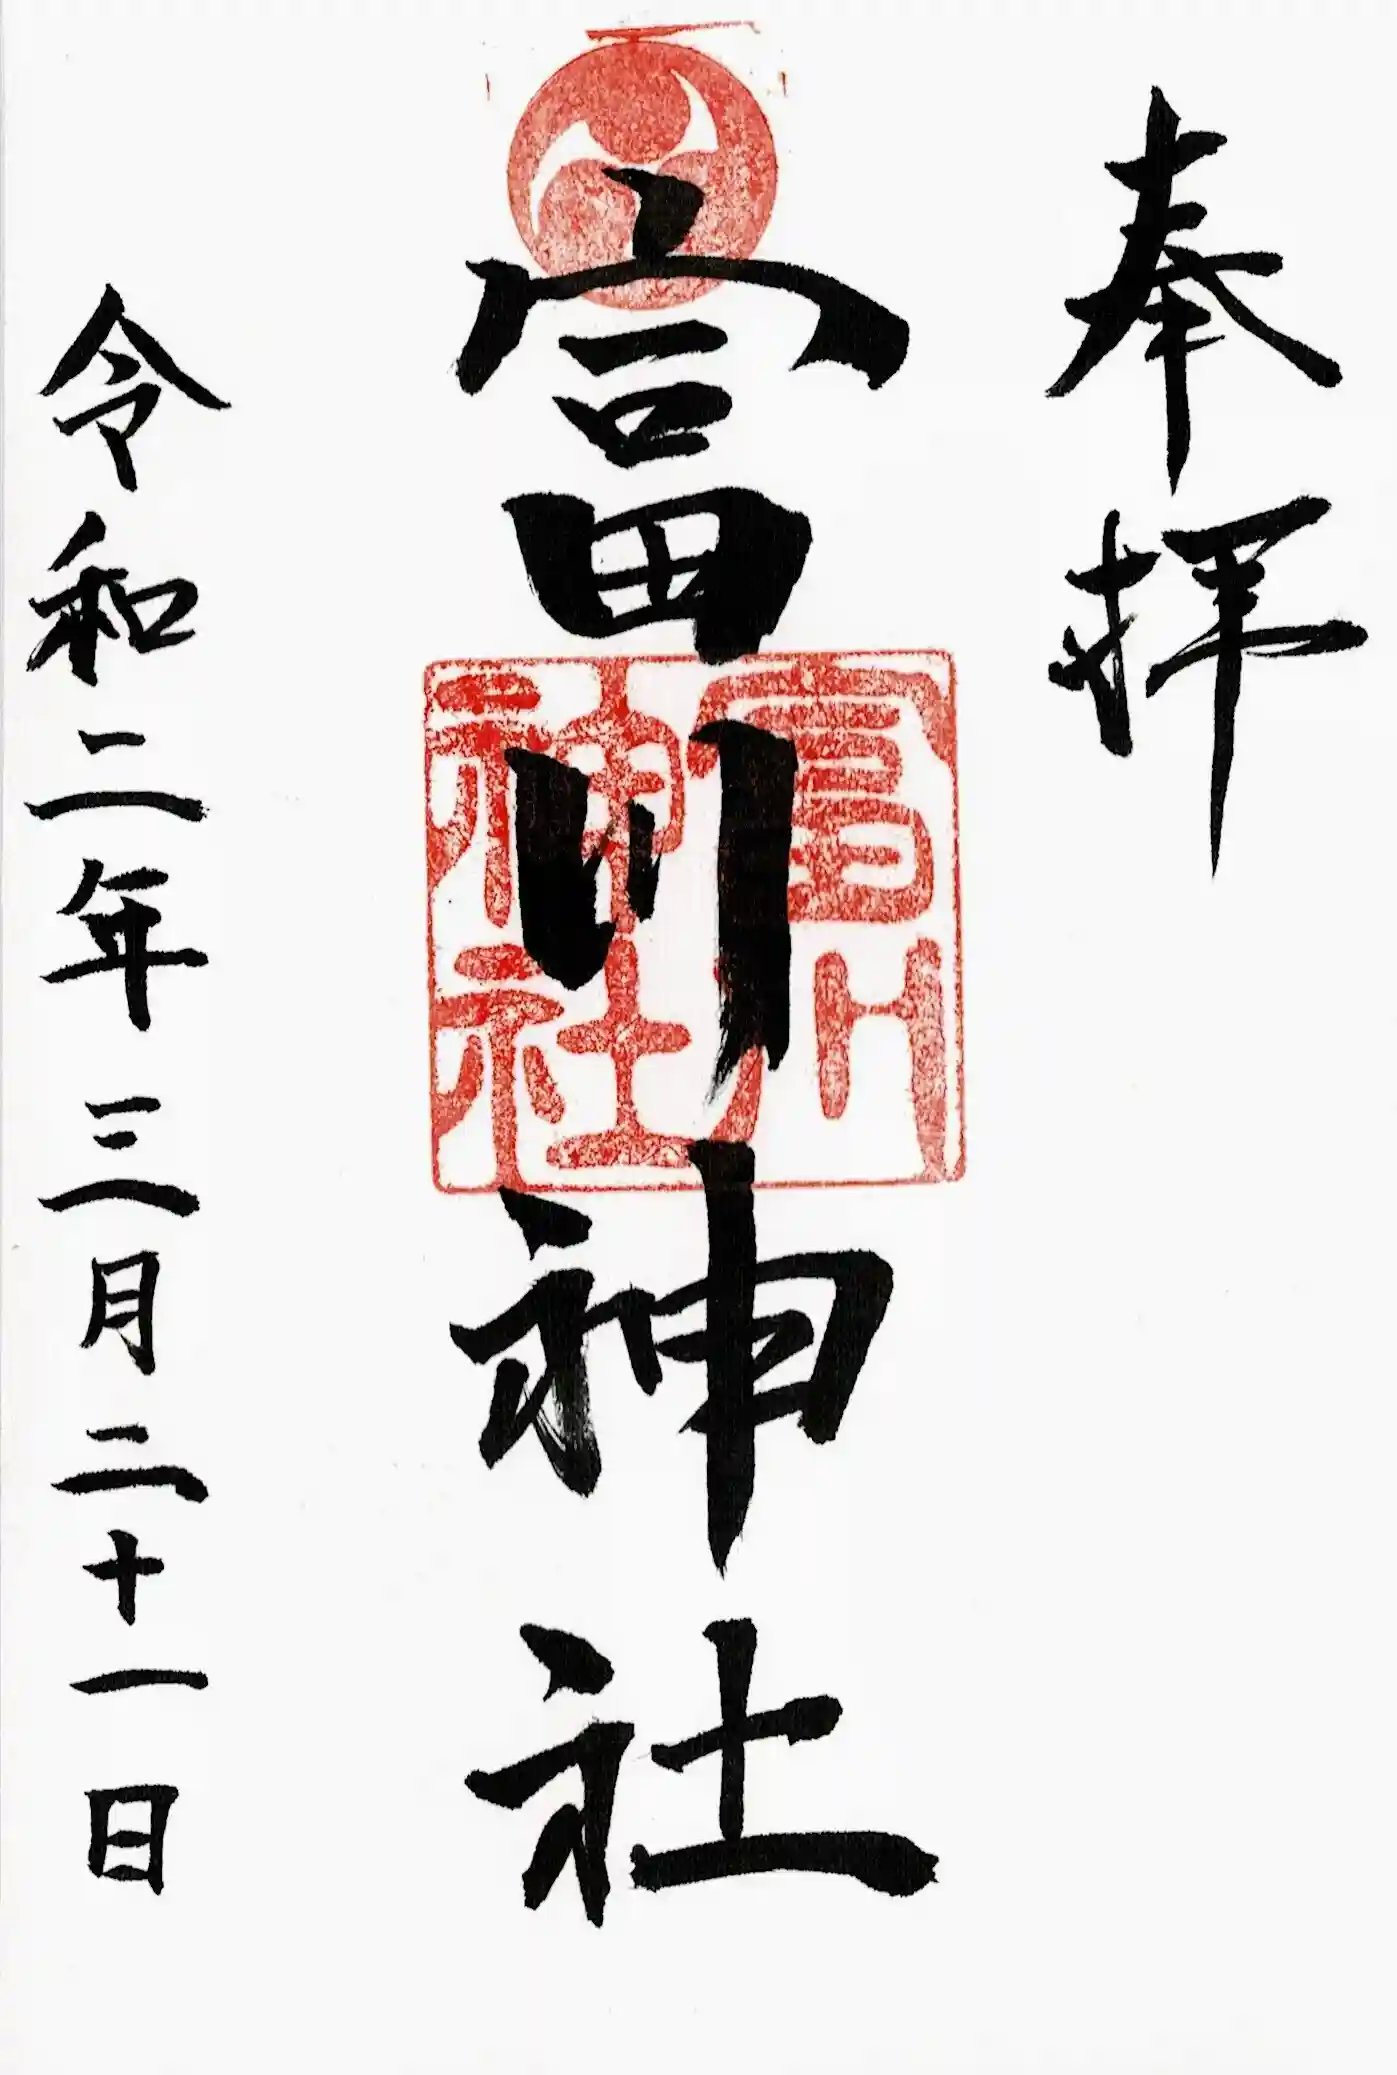 奉拝
富川神社
富川神社
令和二年三月二十一日